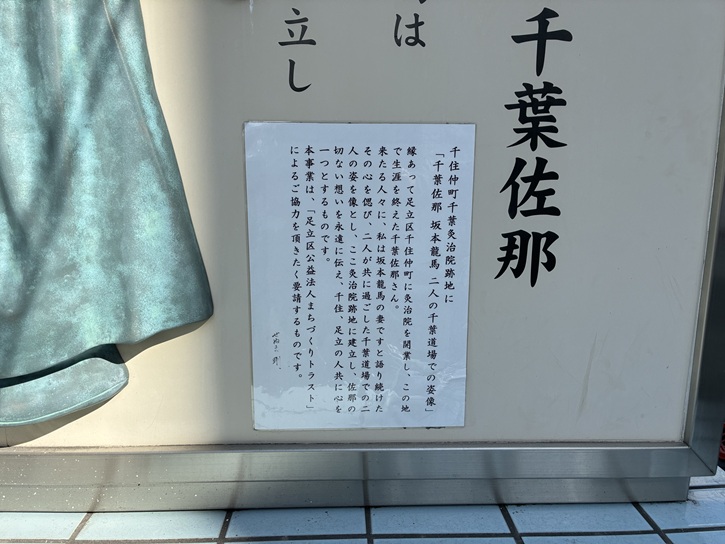 千葉佐那
は
立し
千住仲町千葉灸治院跡地に
「千葉佐那 坂本龍馬 二人の千葉道場での姿像」
縁あって足立区千住仲町に灸治院を開業し、この地
で生涯を終えた千葉佐那さん。
来たる人々に、私は坂本龍馬の妻ですと語り続けた
その心を偲び、二人が共に過ごした千葉道場での二
人の姿を像とし、ここ灸治院跡地に建立し、佐那の
切ない想いを永遠に伝え、千住、足立の人共に心を
一つとするものです。
本事業は、「足立区公益法人まちづくりトラスト」
によるご協力を頂きたく要請するものです。